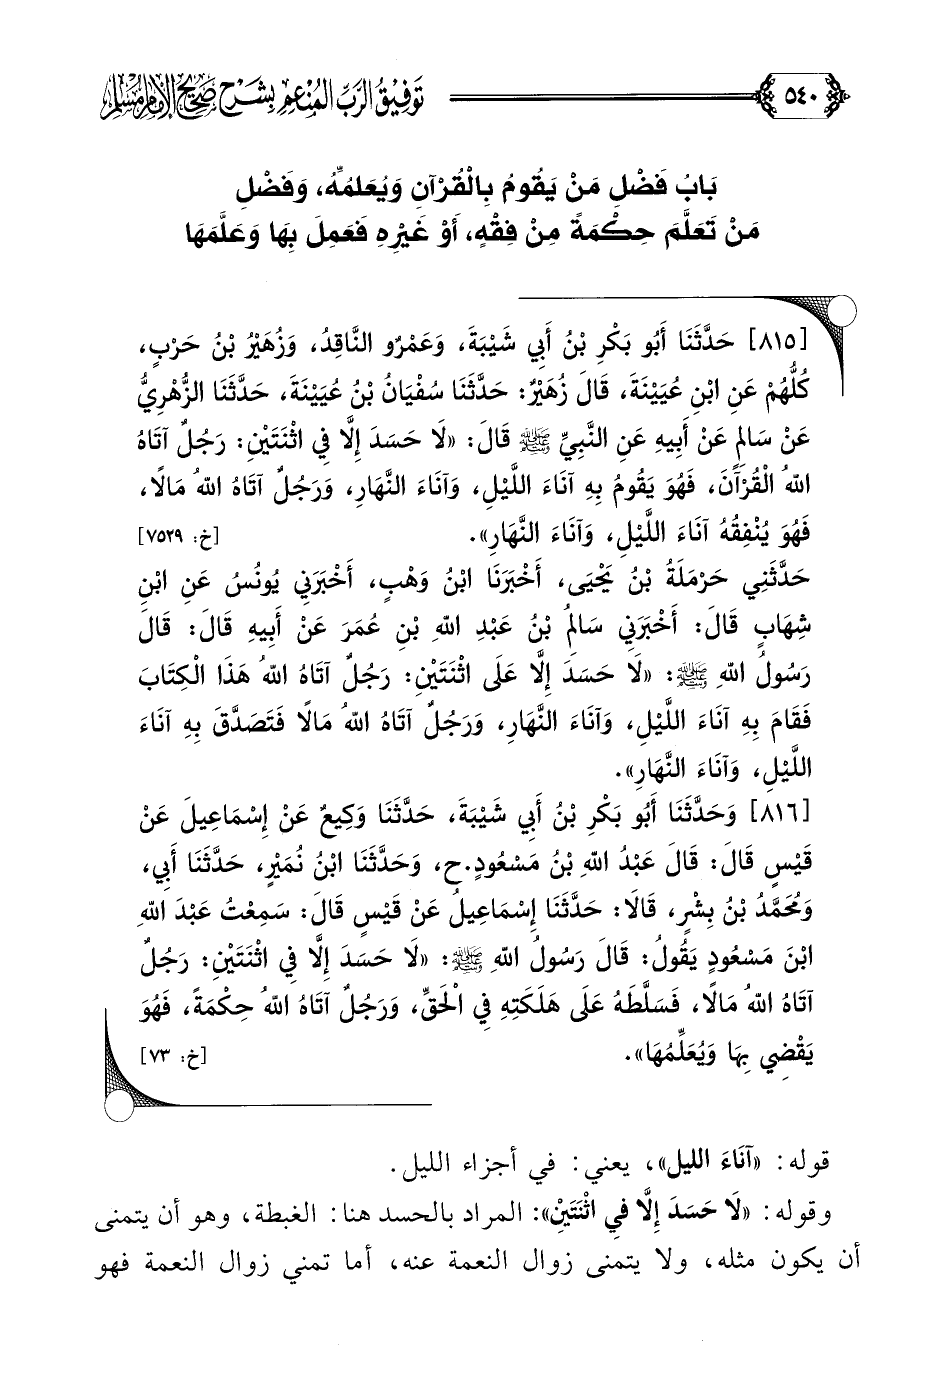 ٥٤٠ توفيق الرب المنعم بشرح صحيح الإمام مسلم
بَابُ فَضْلِ مَنْ يَقُومُ بِالْقُرْآنِ وَيُعَلِّمُهُ، وَفَضْلِ
مَنْ تَعَلَّمَ حِكْمَةً مِنْ فِقْهٍ، أَوْ غَيْرِهِ فَعَمِلَ بِهَا وَعَلَّمَهَا
[٨١٥] حَدَّثَنَا أَبُو بَكْرِ بْنُ أَبِي شَيْبَةَ، وَعَمْرٌو النَّاقِدُ، وَزُهَيْرُ بْنُ حَرْبٍ،
كُلُّهُمْ عَنِ ابْنِ عُيَيْنَةَ، قَالَ زُهَيْرٌ: حَدَّثَنَا سُفْيَانُ بْنُ عُيَيْنَةَ، حَدَّثَنَا الزُّهْرِيُّ
عَنْ سَالِمٍ عَنْ أَبِيهِ عَنِ النَّبِيِّ ﷺ قَالَ: «لَا حَسَدَ إِلَّا فِي اثْنَتَيْنِ: رَجُلٌ آتَاهُ
اللهُ الْقُرْآنَ، فَهُوَ يَقُومُ بِهِ آنَاءَ اللَّيْلِ، وَآنَاءَ النَّهَارِ، وَرَجُلٌ آتَاهُ اللهُ مَالًا،
فَهُوَ يُنْفِقُهُ آنَاءَ اللَّيْلِ، وَآنَاءَ النَّهَارِ». [خ: ٧٥٢٩]
حَدَّثَنِي حَرْمَلَةُ بْنُ يَحْيَى، أَخْبَرَنَا ابْنُ وَهْبٍ، أَخْبَرَنِي يُونُسُ عَنِ ابْنِ
شِهَابٍ قَالَ: أَخْبَرَنِي سَالِمُ بْنُ عَبْدِ اللهِ بْنِ عُمَرَ عَنْ أَبِيهِ قَالَ: قَالَ
رَسُولُ اللهِ ﷺ: «لَا حَسَدَ إِلَّا عَلَى اثْنَتَيْنِ: رَجُلٌ آتَاهُ اللهُ هَذَا الْكِتَابَ
فَقَامَ بِهِ آنَاءَ اللَّيْلِ، وَآنَاءَ النَّهَارِ، وَرَجُلٌ آتَاهُ اللهُ مَالًا فَتَصَدَّقَ بِهِ آنَاءَ
اللَّيْلِ، وَآنَاءَ النَّهَارِ».
[٨١٦] وَحَدَّثَنَا أَبُو بَكْرِ بْنُ أَبِي شَيْبَةَ، حَدَّثَنَا وَكِيعٌ عَنْ إِسْمَاعِيلَ عَنْ
قَيْسٍ قَالَ: قَالَ عَبْدُ اللهِ بْنُ مَسْعُودٍ.ح، وَحَدَّثَنَا ابْنُ نُمَيْرٍ، حَدَّثَنَا أَبِي،
وَمُحَمَّدُ بْنُ بِشْرٍ، قَالَا: حَدَّثَنَا إِسْمَاعِيلُ عَنْ قَيْسٍ قَالَ: سَمِعْتُ عَبْدَ اللهِ
ابْنَ مَسْعُودٍ يَقُولُ: قَالَ رَسُولُ اللهِ ﷺ: «لَا حَسَدَ إِلَّا فِي اثْنَتَيْنِ: رَجُلٌ
آتَاهُ اللهُ مَالًا، فَسَلَّطَهُ عَلَى هَلَكَتِهِ فِي الْحَقِّ، وَرَجُلٌ آتَاهُ اللهُ حِكْمَةً، فَهُوَ
يَقْضِي بِهَا وَيُعَلِّمُهَا». [خ: ٧٣]
قوله: «آنَاءَ الليل»، يعني: في أجزاء الليل.
وقوله: «لَا حَسَدَ إِلَّا فِي اثْنَتَيْنِ»: المراد بالحسد هنا: الغبطة، وهو أن يتمنى
أن يكون مثله، ولا يتمنى زوال النعمة عنه، أما تمني زوال النعمة فهو